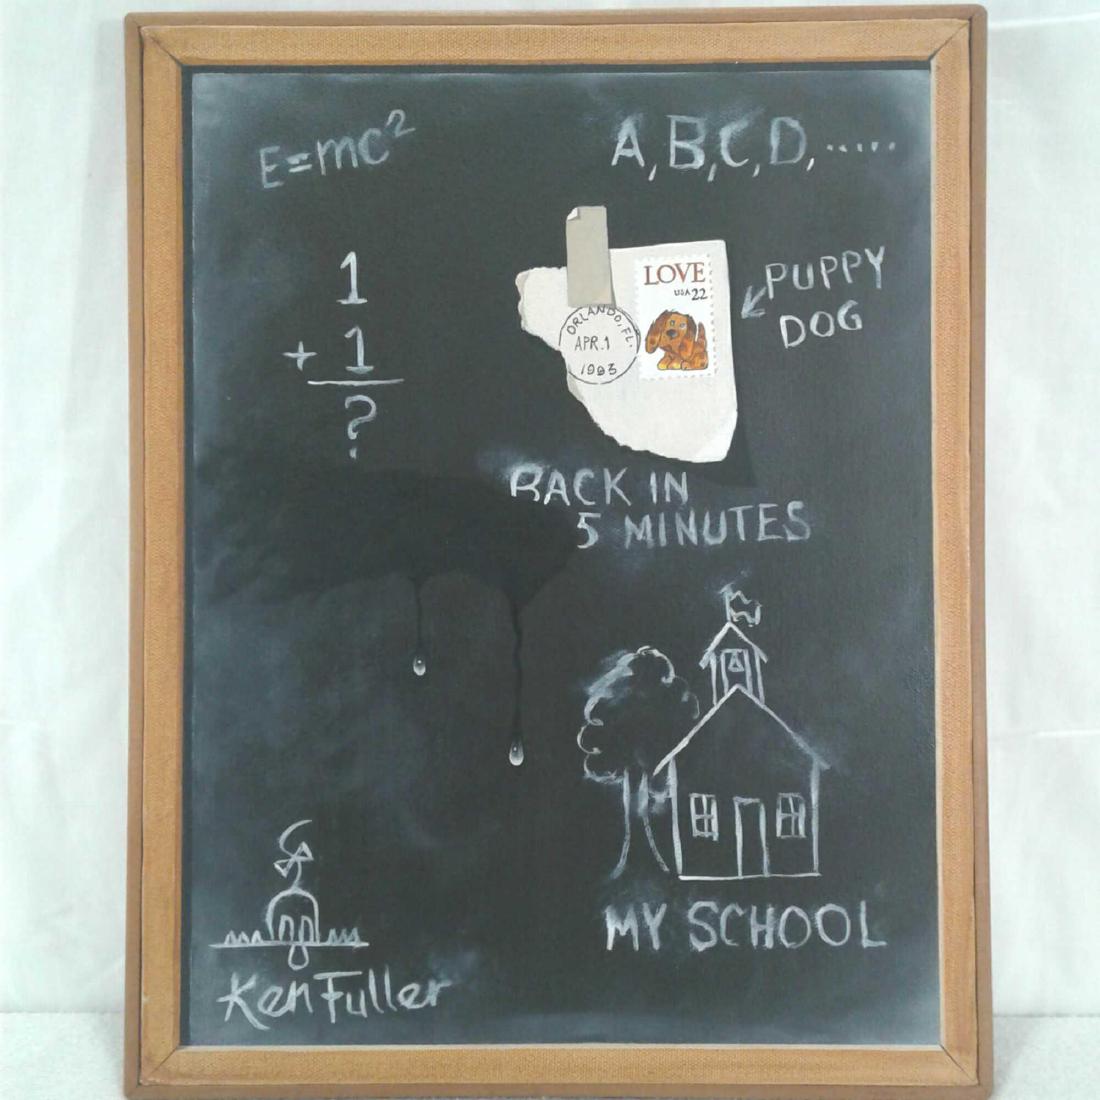 E=mc²
A,B,C,D,......
1
+ 1
?
LOVE
USA 22
ORLANDO, FL.
APR.1
1993
PUPPY
DOG
BACK IN
5 MINUTES
MY SCHOOL
Ken Fuller